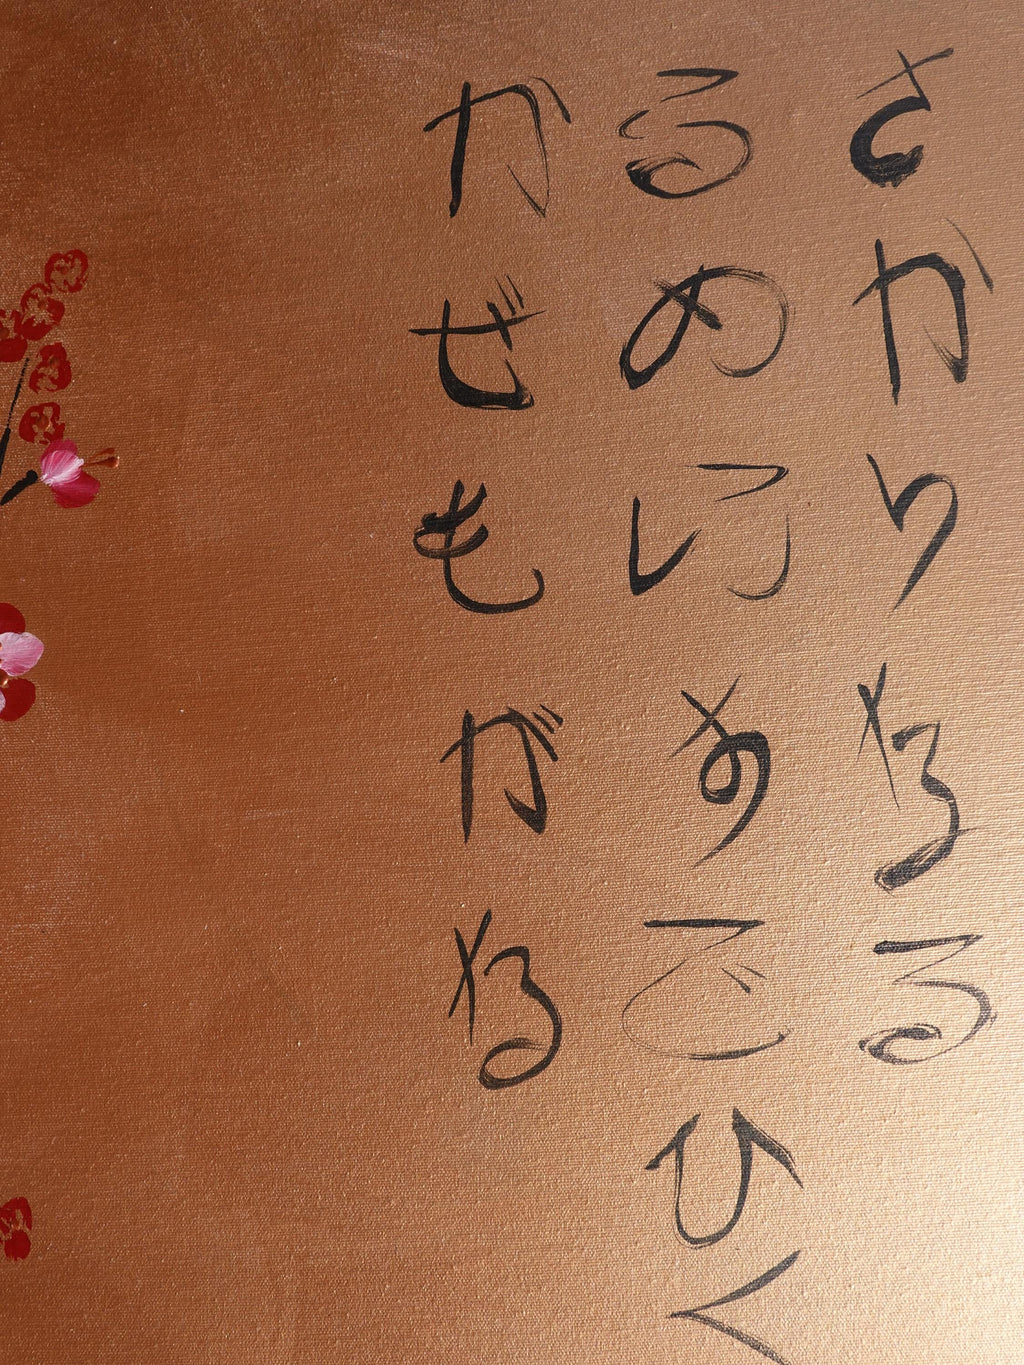 さかりなる
るめにすでひく
かぜもがな